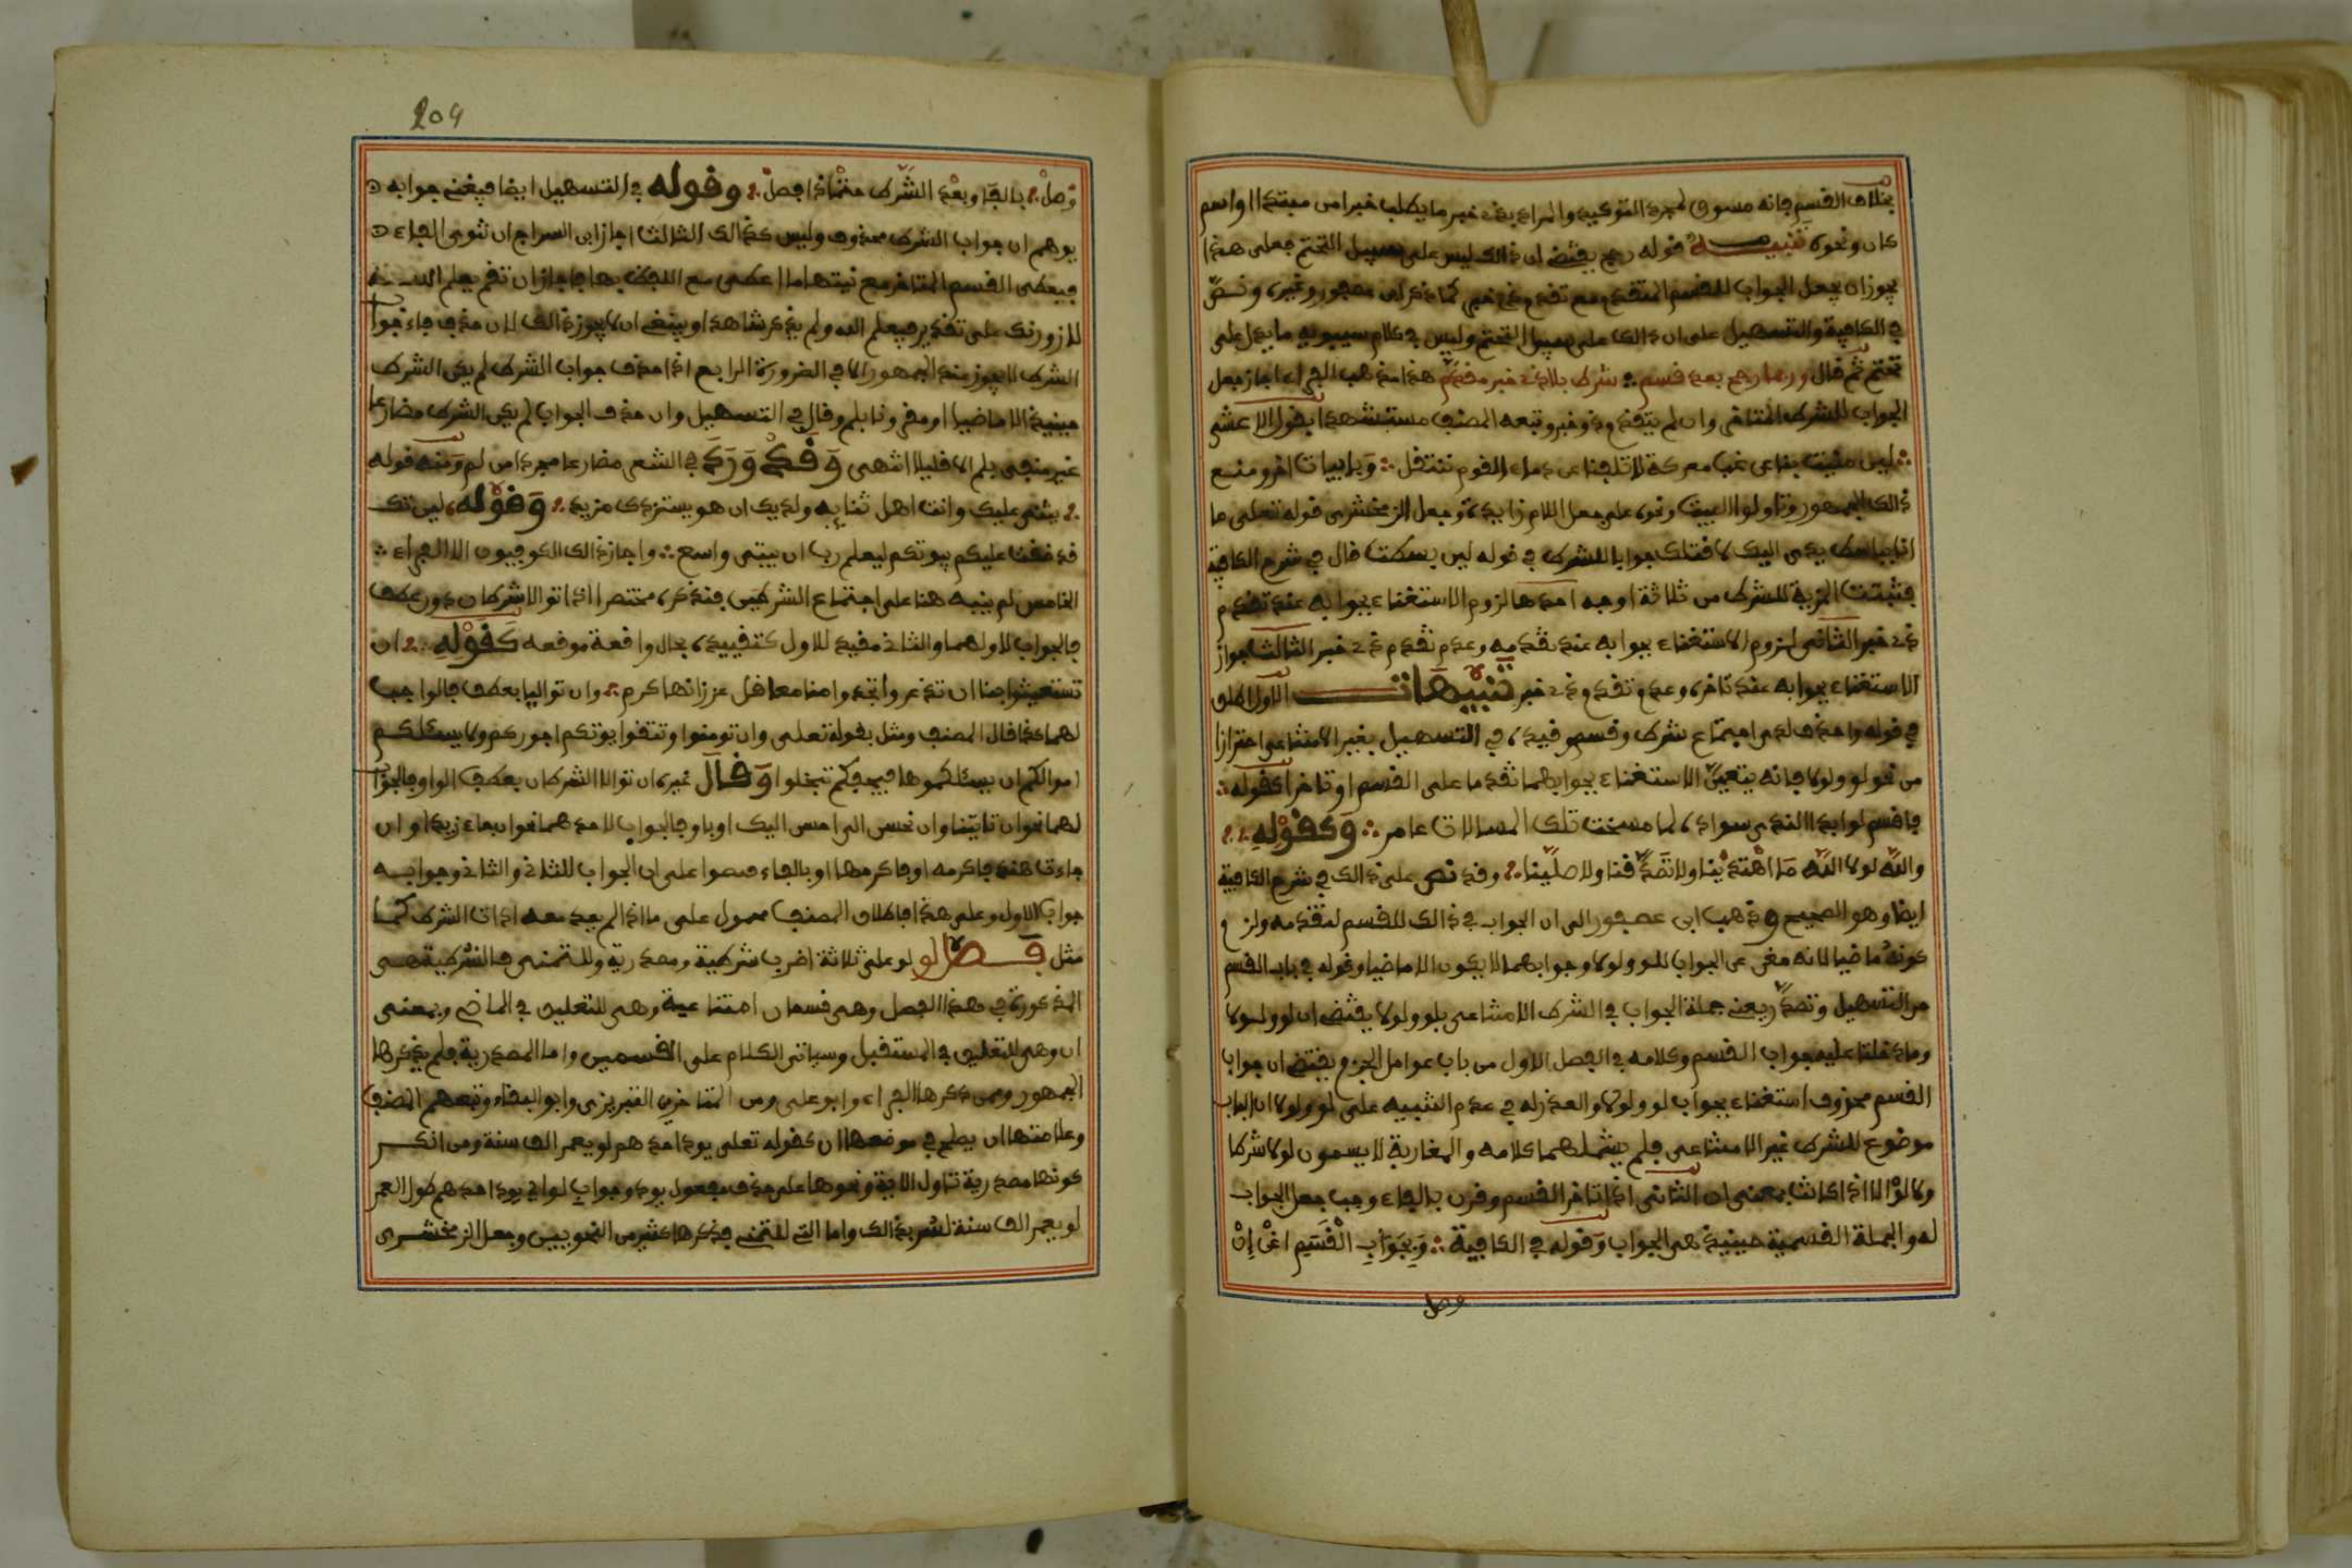 بخلاف القسم فانه مسوق لمجرد التوكيد والمراد بذي خبر ما يطلب خبرا من مبتدا او اسم
كان ونحوه تنبيه قوله رجح يقتضي ان ذالك ليس على سبيل التحتم فعلى هذا
يجوز ان يجعل الجواب للقسم المتقدم مع تقدم ذي خبر كما ذكر ابن عصفور وغيره ونص
في الكافية والتسهيل على ان ذالك على سبيل التحتم وليس في كلام سيبويه ما يدل على
تحتم ثم قال وربما رجح بعد قسم شرط بلا ذي خبر مقدم هذا مذهب الفراء اجاز جعل
الجواب للشرط المتاخر وان لم يتقدم ذو خبر وتبعه المصنف مستشهدا بقول الاعشى
لين منيت بنا عن غب معركة لا تلفنا عن دماء القوم ننتفل وبابيات اخر ومنع
ذالك الجمهور وتاولوا البيت ونحوه على جعل اللام زايدة وجعل الزمخشري قوله تعلى ما
انا بباسط يدي اليك لاقتلك جوابا للشرط في قوله لين بسطت قال في شرح الكافية
فثبتت المزية للشرط من ثلاثة اوجه احدها لزوم الاستغناء بجوابه عند تقدم
ذي خبر الثاني لزوم الاستغناء بجوابه عند تقدمه وعدم تقدم ذي خبر الثالث جواز
الاستغناء بجوابه عند تاخره وعدم تقدم ذي خبر تنبيهات الاول اطلق
في قوله واحذف لدى اجتماع شرط وقسم وقيده في التسهيل بغير الامتناعي احترازا
من نحو لو ولولا فانه يتعين الاستغناء بجوابهما تقدما على القسم او تاخرا كقوله
فاقسم لو ابدا الندي سواده لما مسحت تلك المسالات عامر وكقوله
والله لولا الله ما اهتدينا ولا تصدقنا ولا صلينا وقد نص على ذالك في شرح الكافية
ايضا وهو الصحيح وذهب ابن عصفور الى ان الجواب في ذالك للقسم لتقدمه ولزم
كونه ماضيا لانه مغن عن الجواب للو ولولا وجوابهما لا يكون الا ماضيا وقوله في باب القسم
من التسهيل وتصدر يعني جملة الجواب في الشرط الامتناعي بلو ولولا يقتضي ان لو ولولا
وما دخلتا عليه جواب القسم وكلامه في الفصل الاول من باب عوامل الجزم يقتضي ان جواب
القسم محذوف استغناء بجواب لو ولولا والعذر له في عدم التنبيه على لو ولولا ان الباب
موضوع للشرط غير الامتناعي فلم يشملهما كلامه والمغاربة لا يسمون لولا شرطا
ولا لو الا اذا كانت بمعنى ان الثاني اذا تاخر القسم وقرن بالفاء وجب جعل الجواب
له والجملة القسمية حينيذ هي الجواب وقوله في الكافية وبجواب القسم اغن إن
وصل
204
وصل بالفا وبعد الشرط حتما ذا افصل وقوله في التسهيل ايضا فيغني جوابه
يوهم ان جواب الشرط محذوف وليس كذالك الثالث اجاز ابن السراج ان تنوى الفاء
فيعطى القسم المتاخر مع نيتها ما اعطى مع اللفظ بها فاجاز ان تقم يعلم الله
لازورنك على تقدير فيعلم الله ولم يذكر شاهدا وينبغي ان لا يجوز ذالك لان حذف فاء جواب
الشرط لا يجوز عند الجمهور الا في الضرورة الرابع اذا حذف جواب الشرط لم يكن الشرط
حينيذ الا ماضيا او مقرونا بلم وقال في التسهيل وان حذف الجواب لم يكن الشرط مضارعا
غير منفي بلم الا قليلا انتهى وقد ورد في الشعر مضارعا مجردا من لم ومنه قوله
يثني عليك وانت اهل ثنايه ولديك ان هو يستزدك مزيد وقوله لين تك
قد ضاقت عليكم بيوتكم ليعلم ربي ان بيتي واسع واجاز ذالك الكوفيون الا الفراء
الخامس لم ينبه هنا على اجتماع الشرطين فنذكره مختصرا اذا توالى شرطان دون عطف
فالجواب لاولهما والثاني مقيد للاول كتقييده بحال واقعة موقعه كقوله ان
تستغيثوا بنا ان تذعروا تجدوا منا معاقل عز زانها كرم وان تواليا بعطف فالواجب
لهما كذا قال المصنف ومثل بقوله تعلى وان تومنوا وتتقوا يوتكم اجوركم ولا يسئلكم
اموالكم ان يسئلكموها فيحفكم تبخلوا وقال غيره ان توالى الشرطان بعطف الواو فالجواب
لهما نحو ان تاتينا وان تحسن الي احسن اليك او باو فالجواب لاحدهما نحو ان جاء زيد او ان
جاءت هند فاكرمه او فاكرمها او بالفاء فنصوا على ان الجواب للثاني والثاني وجوابه
جواب الاول وعلى هذا فاطلاق المصنف محمول على ما اذا لم يعد معه اداة الشرط كما
مثل فصل لو لو على ثلاثة اضرب شرطية ومصدرية وللتمني فالشرطية هي
المذكورة في هذا الفصل وهي قسمان امتناعية وهي للتعليق في الماضي وبمعنى
ان وهي للتعليق في المستقبل وسياتي الكلام على القسمين واما المصدرية فلم يذكرها
الجمهور وممن ذكرها الفراء وابو علي ومن المتاخرين التبريزي وابو البقاء وتبعهم المصنف
وعلامتها ان يصلح في موضعها ان كقوله تعلى يود احدهم لو يعمر الف سنة ومن انكر
كونها مصدرية تاول الاية ونحوها على حذف مفعول يود وجواب لو اي يود احدهم طول العمر
لو يعمر الف سنة لسر بذالك واما التي للتمني فذكرها كثير من النحويين وجعل الزمخشري